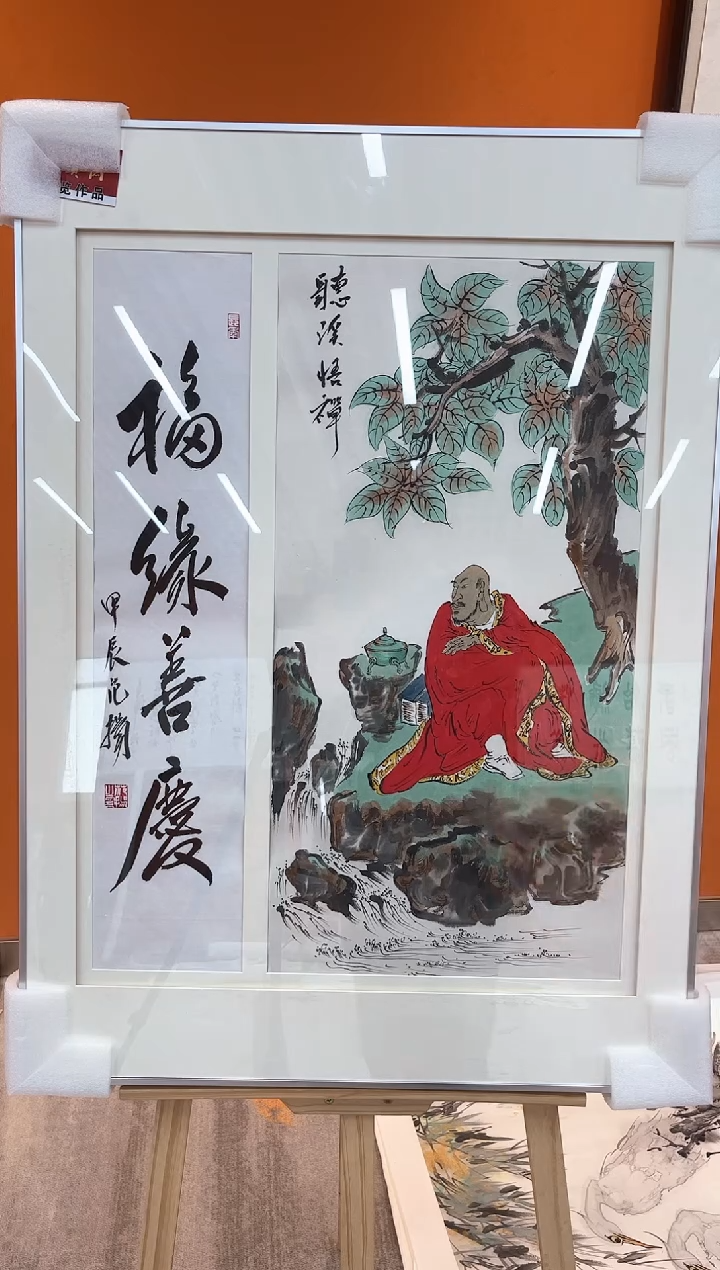 览作品
聽溪悟禪
福缘善慶
甲辰